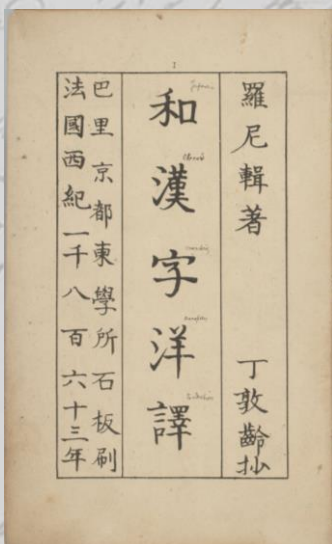 羅尼輯著 丁敦齡抄
和漢字洋譯
巴里京都東學所石板刷
法國西紀一千八百六十三年